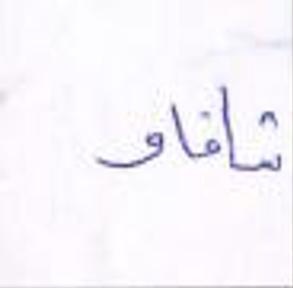 شافاو